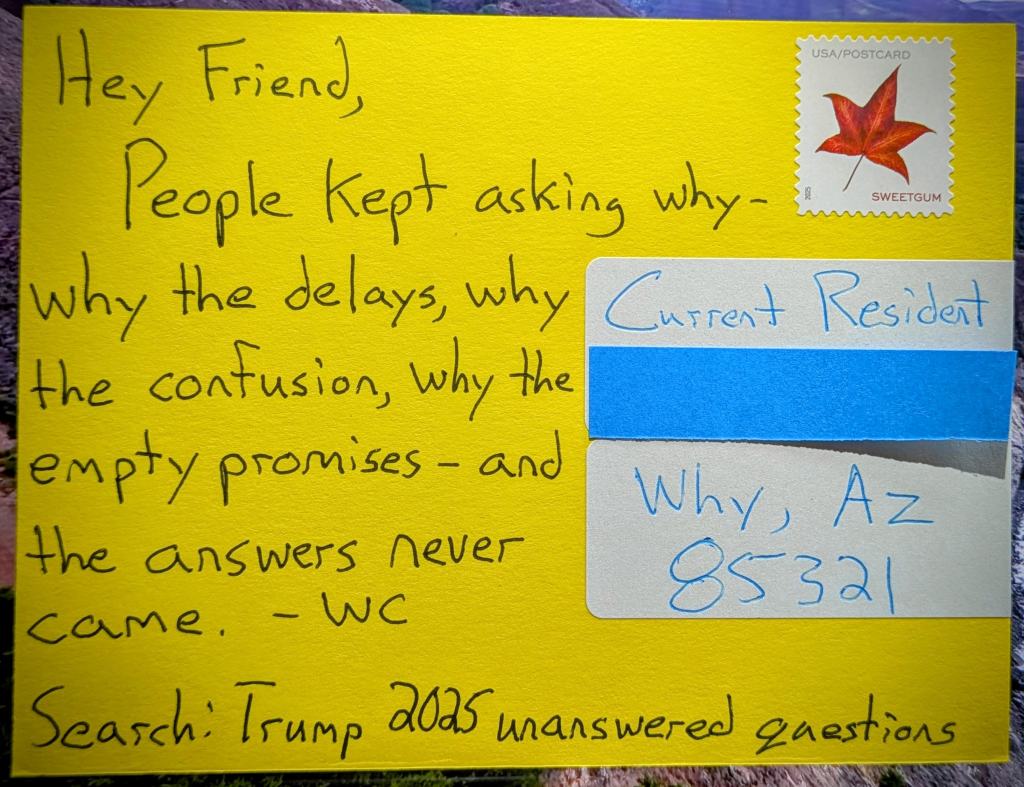 Hey Friend,
People kept asking why-
why the delays, why
the confusion, why the
empty promises - and
the answers never
came. - WC
Search: Trump 2025 unanswered questions
USA/POSTCARD
2025
SWEETGUM
Current Resident
Why, Az
85321